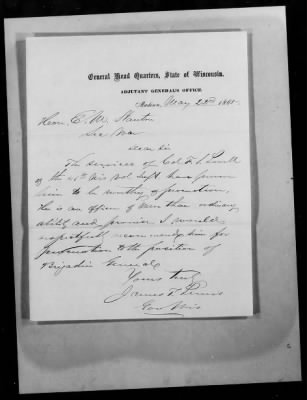 General Head Quarters, State of Wisconsin.
ADJUTANT GENERAL'S OFFICE.
Madison, May 23rd 1865.
Hon. E. M. Stanton
Sec War
Dear Sir
The services of Col
of the Wis Vol Inft have proven
him to be worthy of promotion,
He is an officer of more than ordinary
ability and I would
respectfully recommend him for
promotion to the position of
Brigadier General
Yours truly
James T Lewis
Gov Wis